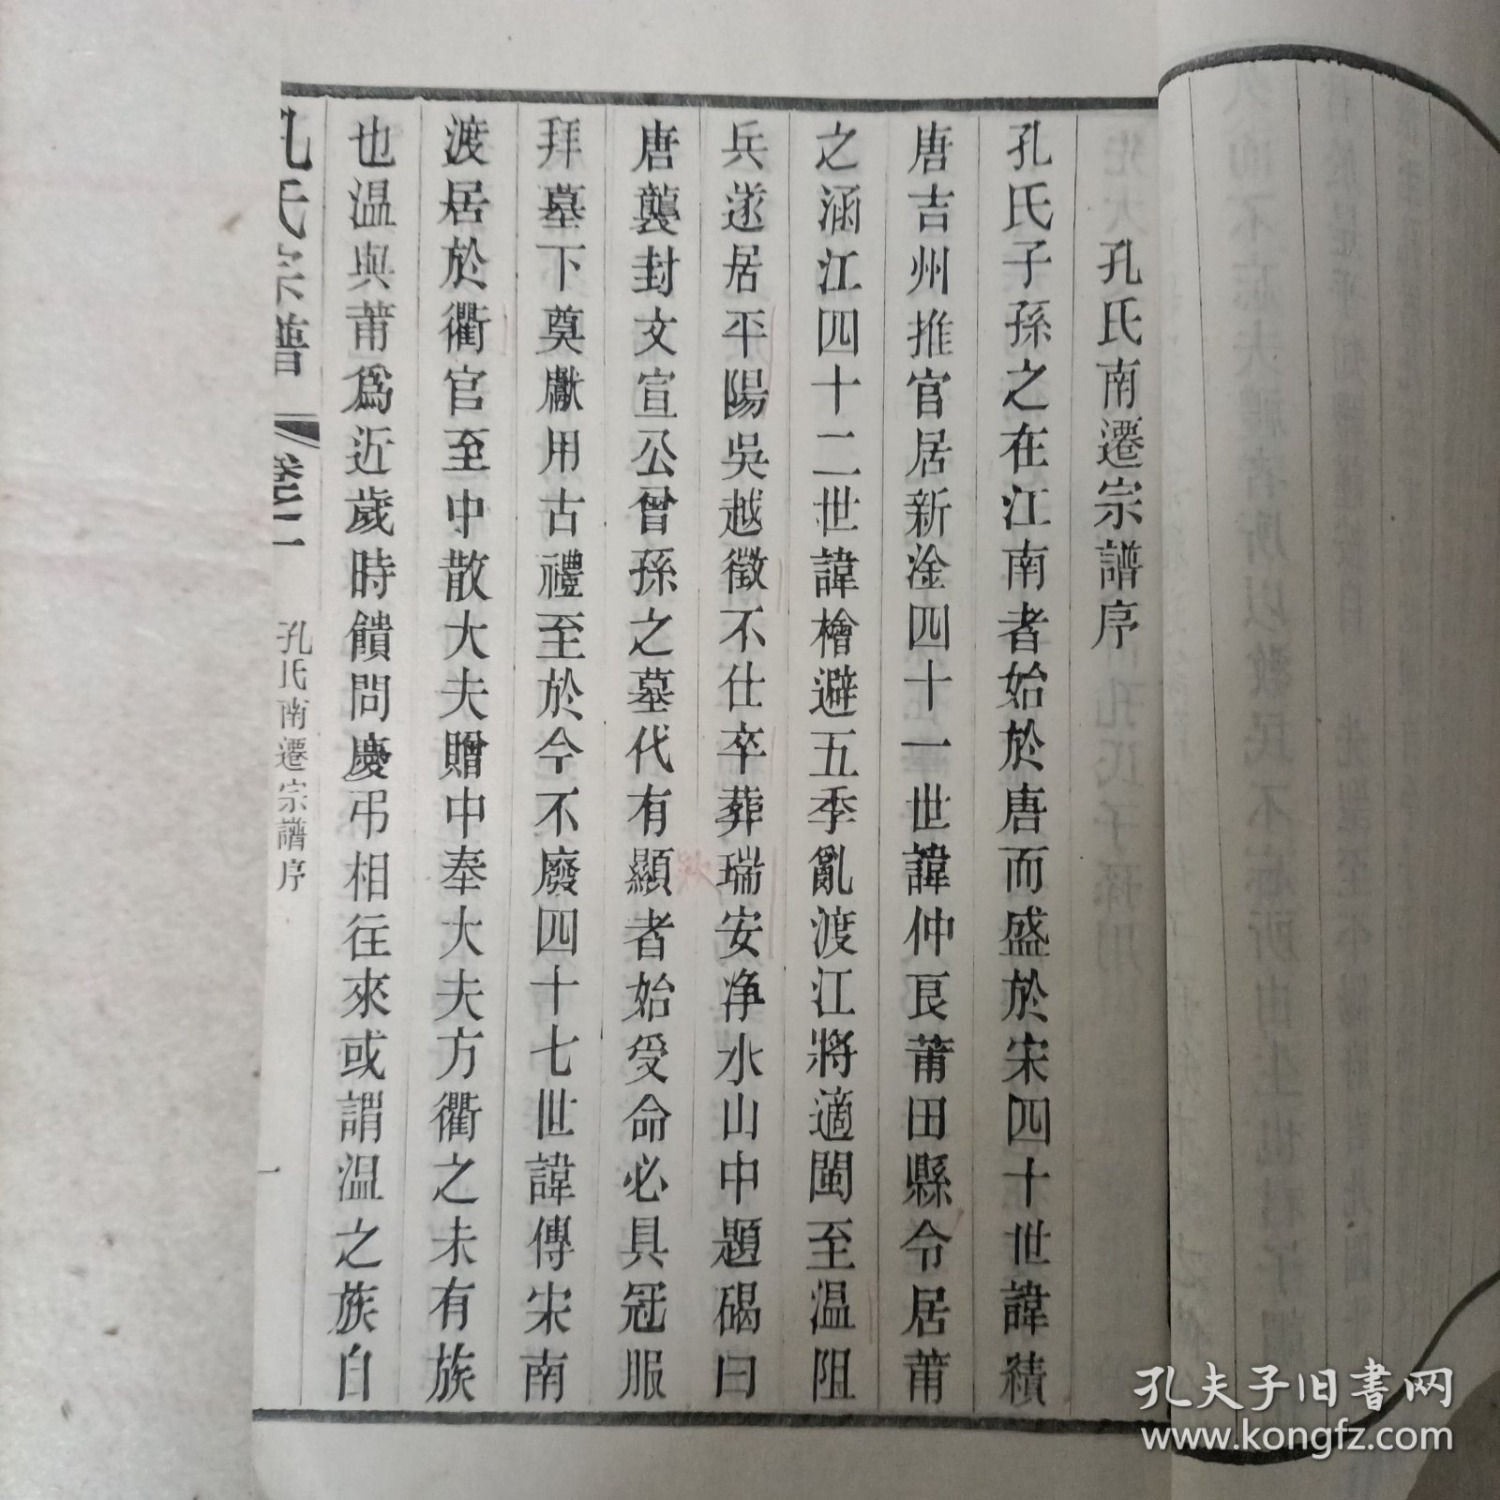 孔氏南遷宗譜序
孔氏子孫之在江南者始於唐而盛於宋四十世諱績
唐吉州推官居新淦四十一世諱仲良莆田縣令居莆
之涵江四十二世諱檜避五季亂渡江將適閩至温阻
兵遂居平陽吳越徵不仕卒葬瑞安净水山中題碣曰
唐襲封文宣公曾孫之墓代有顯者始受命必具冠服
拜墓下奠獻用古禮至於今不廢四十七世諱傳宋南
渡居於衢官至中散大夫贈中奉大夫方衢之未有族
也温與莆爲近歲時饋問慶弔相往來或謂温之族自
孔氏宗譜
卷一
孔氏南遷宗譜序
一
孔夫子旧書网
www.kongfz.com